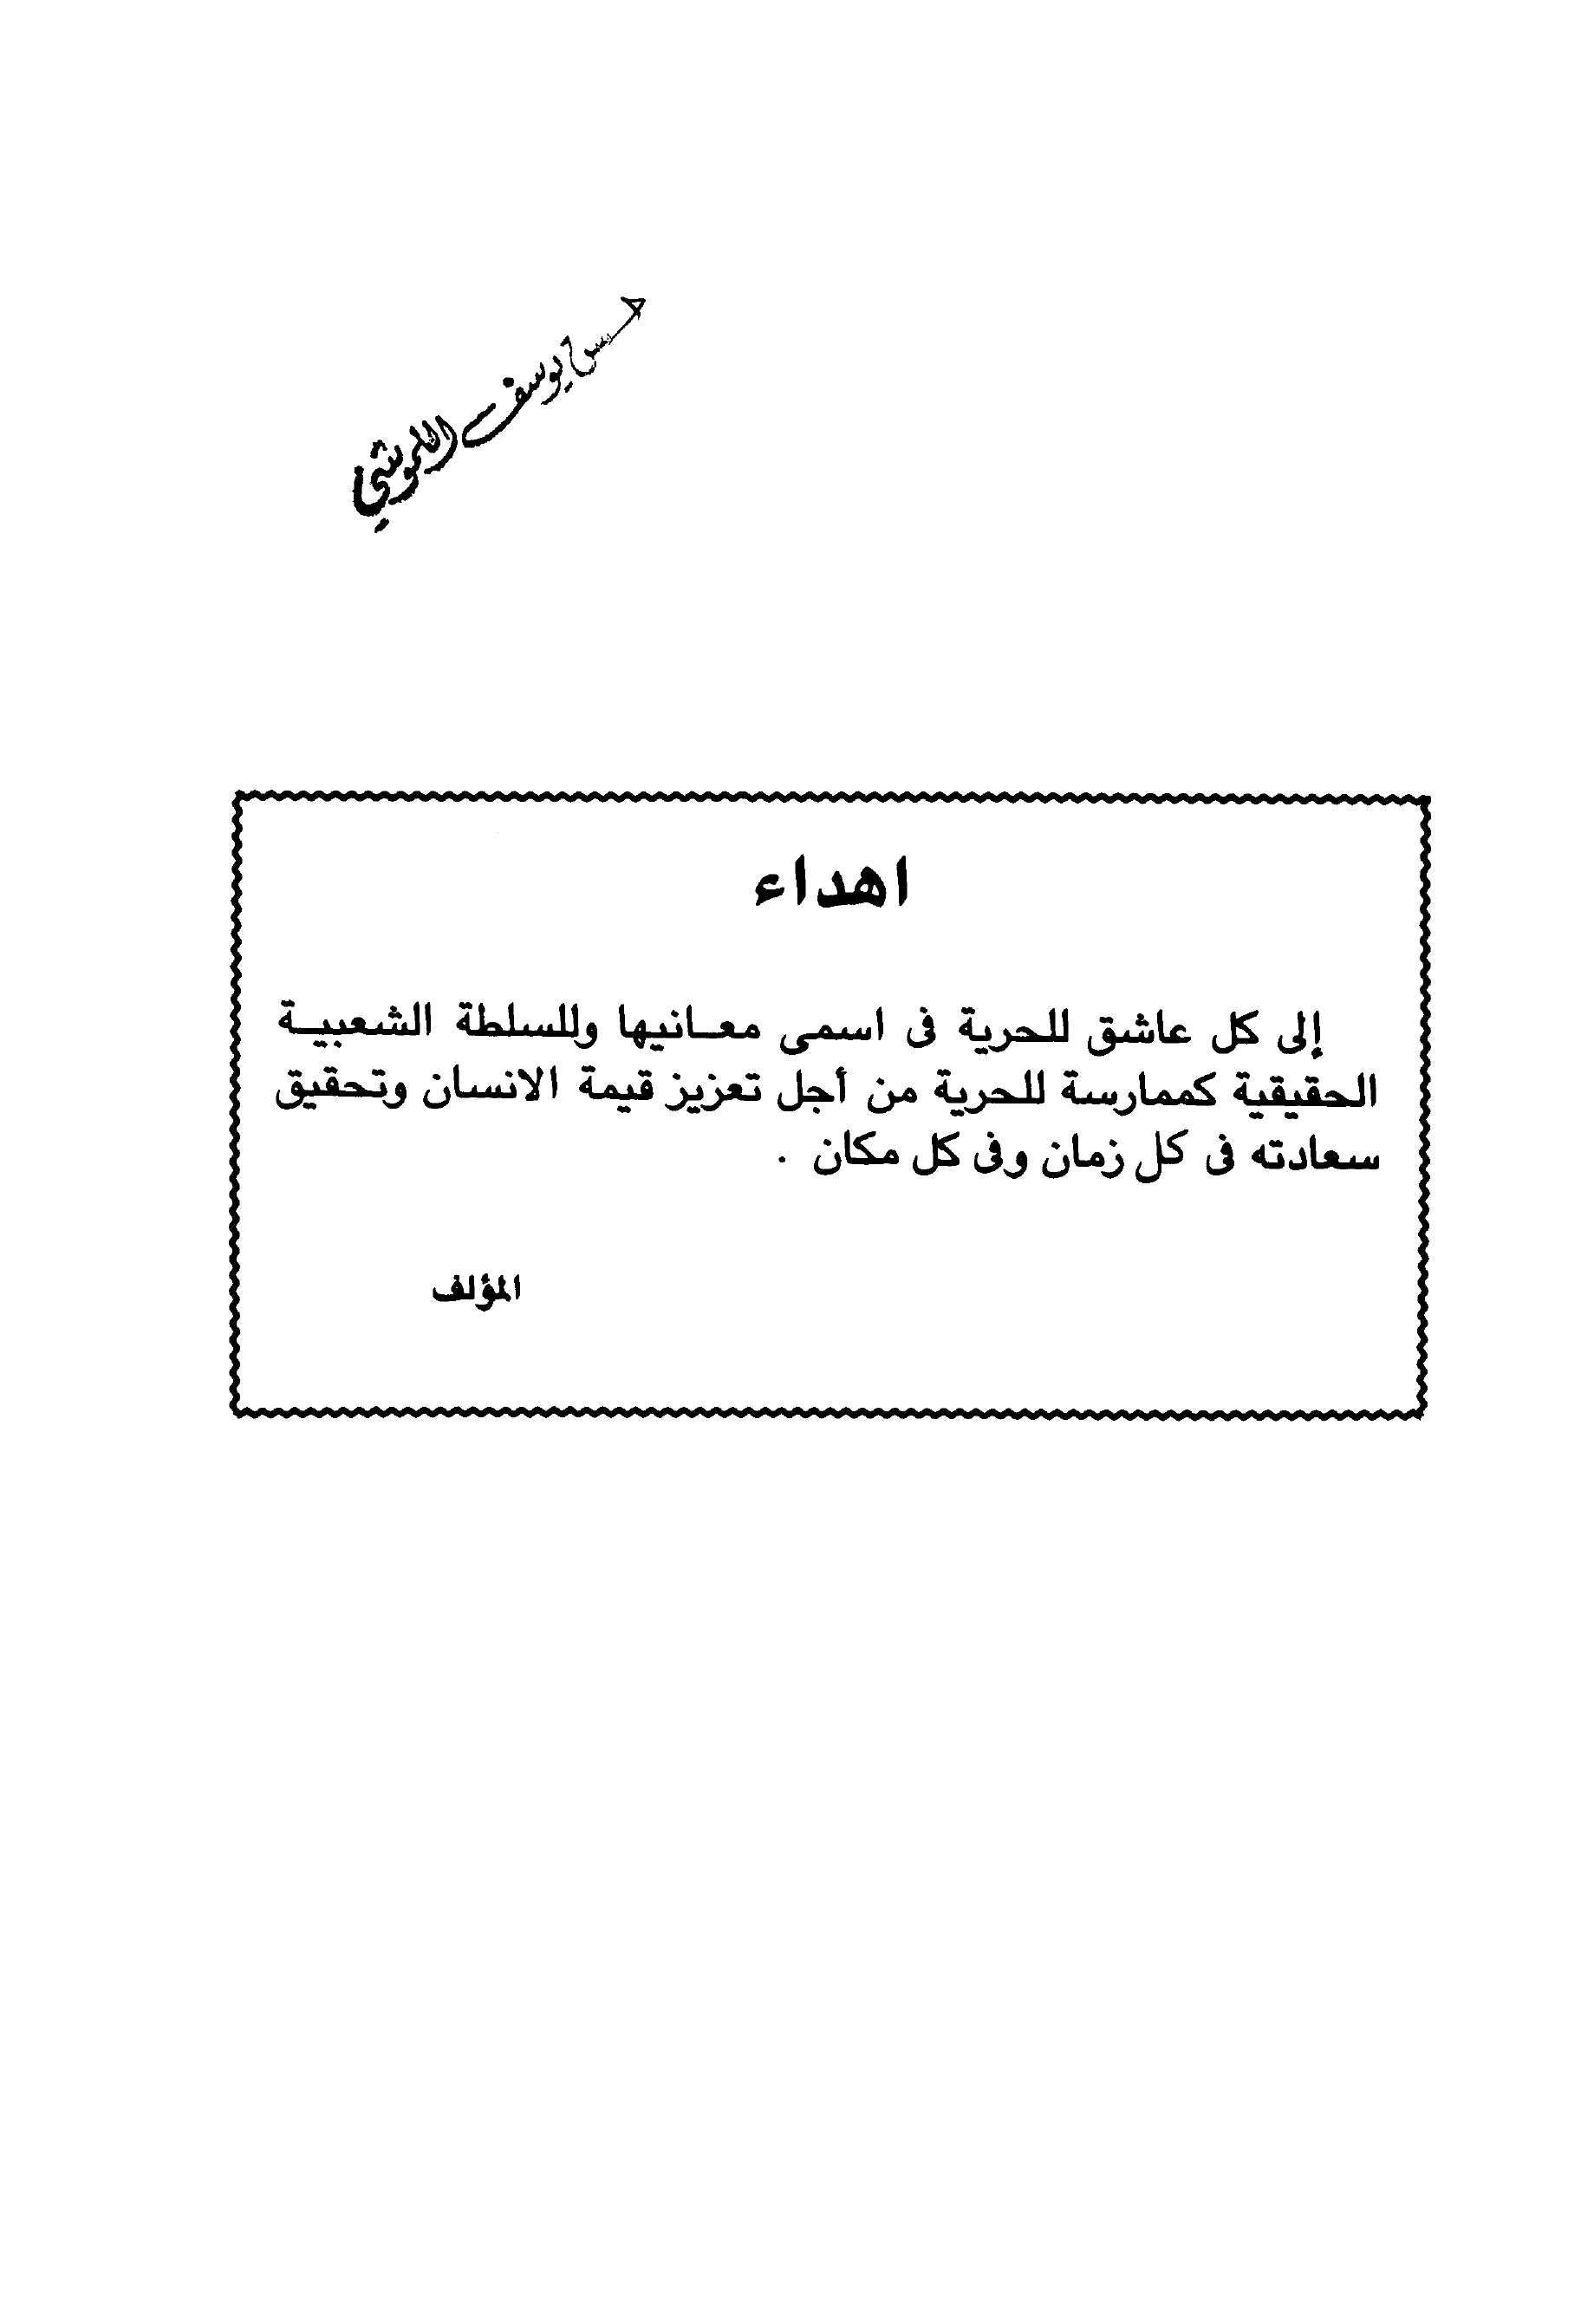 حسن يوسف
اهداء
إلى كل عاشق للحرية فى اسمى معانيها وللسلطة الشعبية
الحقيقية كممارسة للحرية من أجل تعزيز قيمة الانسان وتحقيق
سعادته فى كل زمان وفى كل مكان .
المؤلف